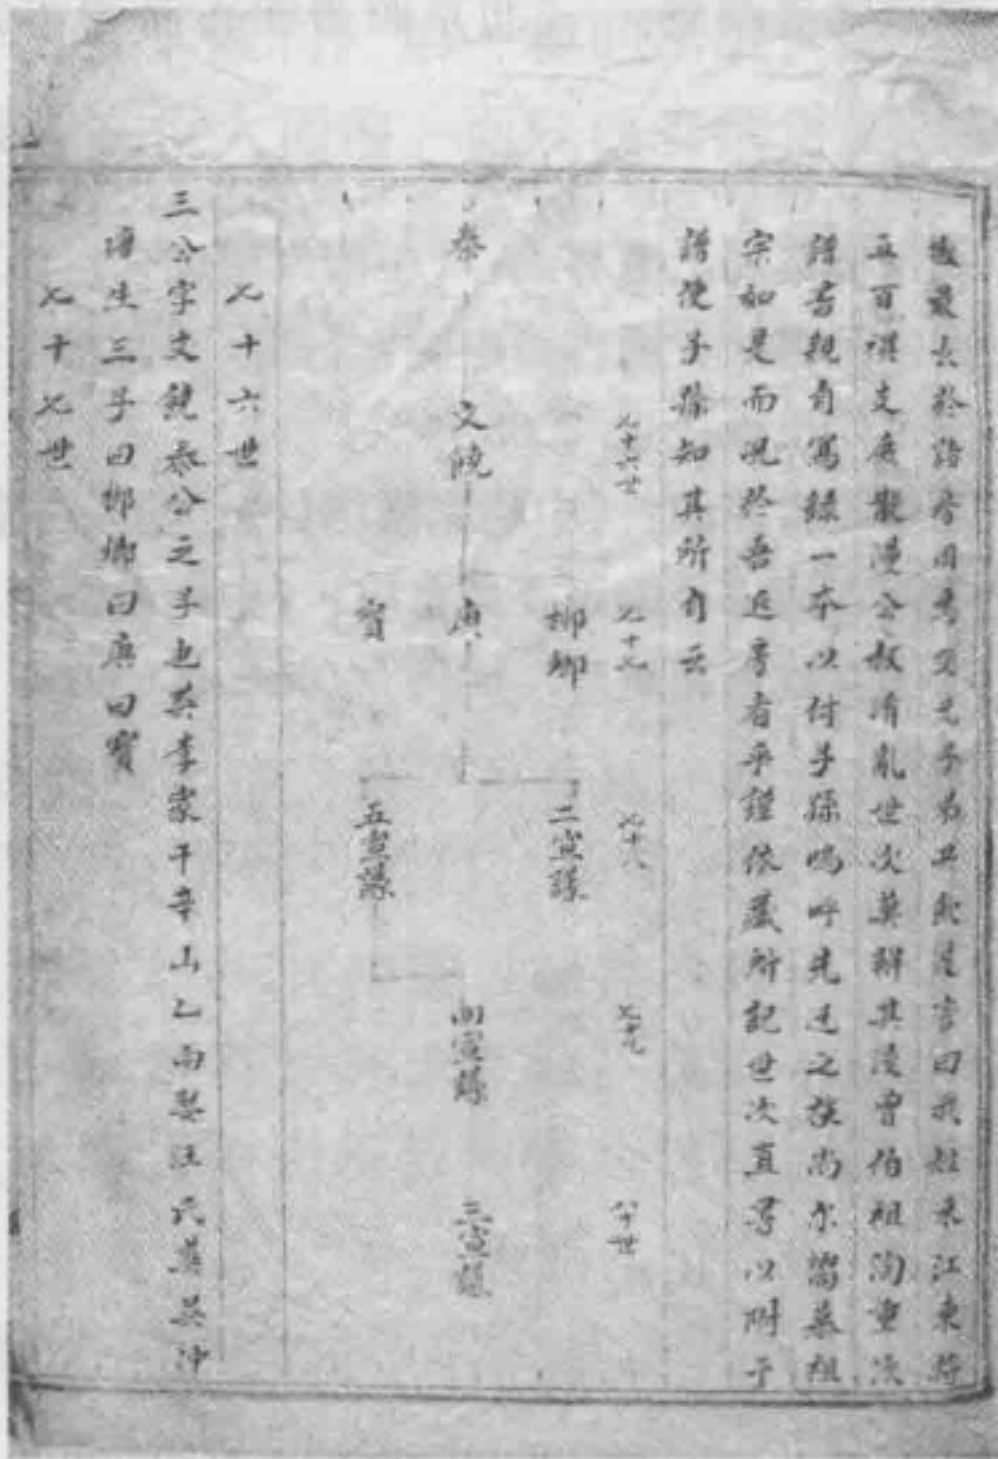 最長於諸房因考父兄子弟
五百禩支庶散漫公叔清亂世次莫辨其後曾伯祖洵重次
譜書親自寫錄一本以付子孫嗚呼先進之族尚尔篤慕祖
宗如是而况於吾近房者乎謹依舊所記世次直書以附于
譜使子孫知其所自云
七十六世
七十七
七十八
七十九
八十世
泰
文饒
柳鄉
庚
寶
二宣議
五宣議
四宣議
三宣議
七十六世
三公字文饒泰公之子也葬李家干辛山乙向娶汪氏葬吳冲
生三子曰柳鄉曰庚曰寶
七十七世